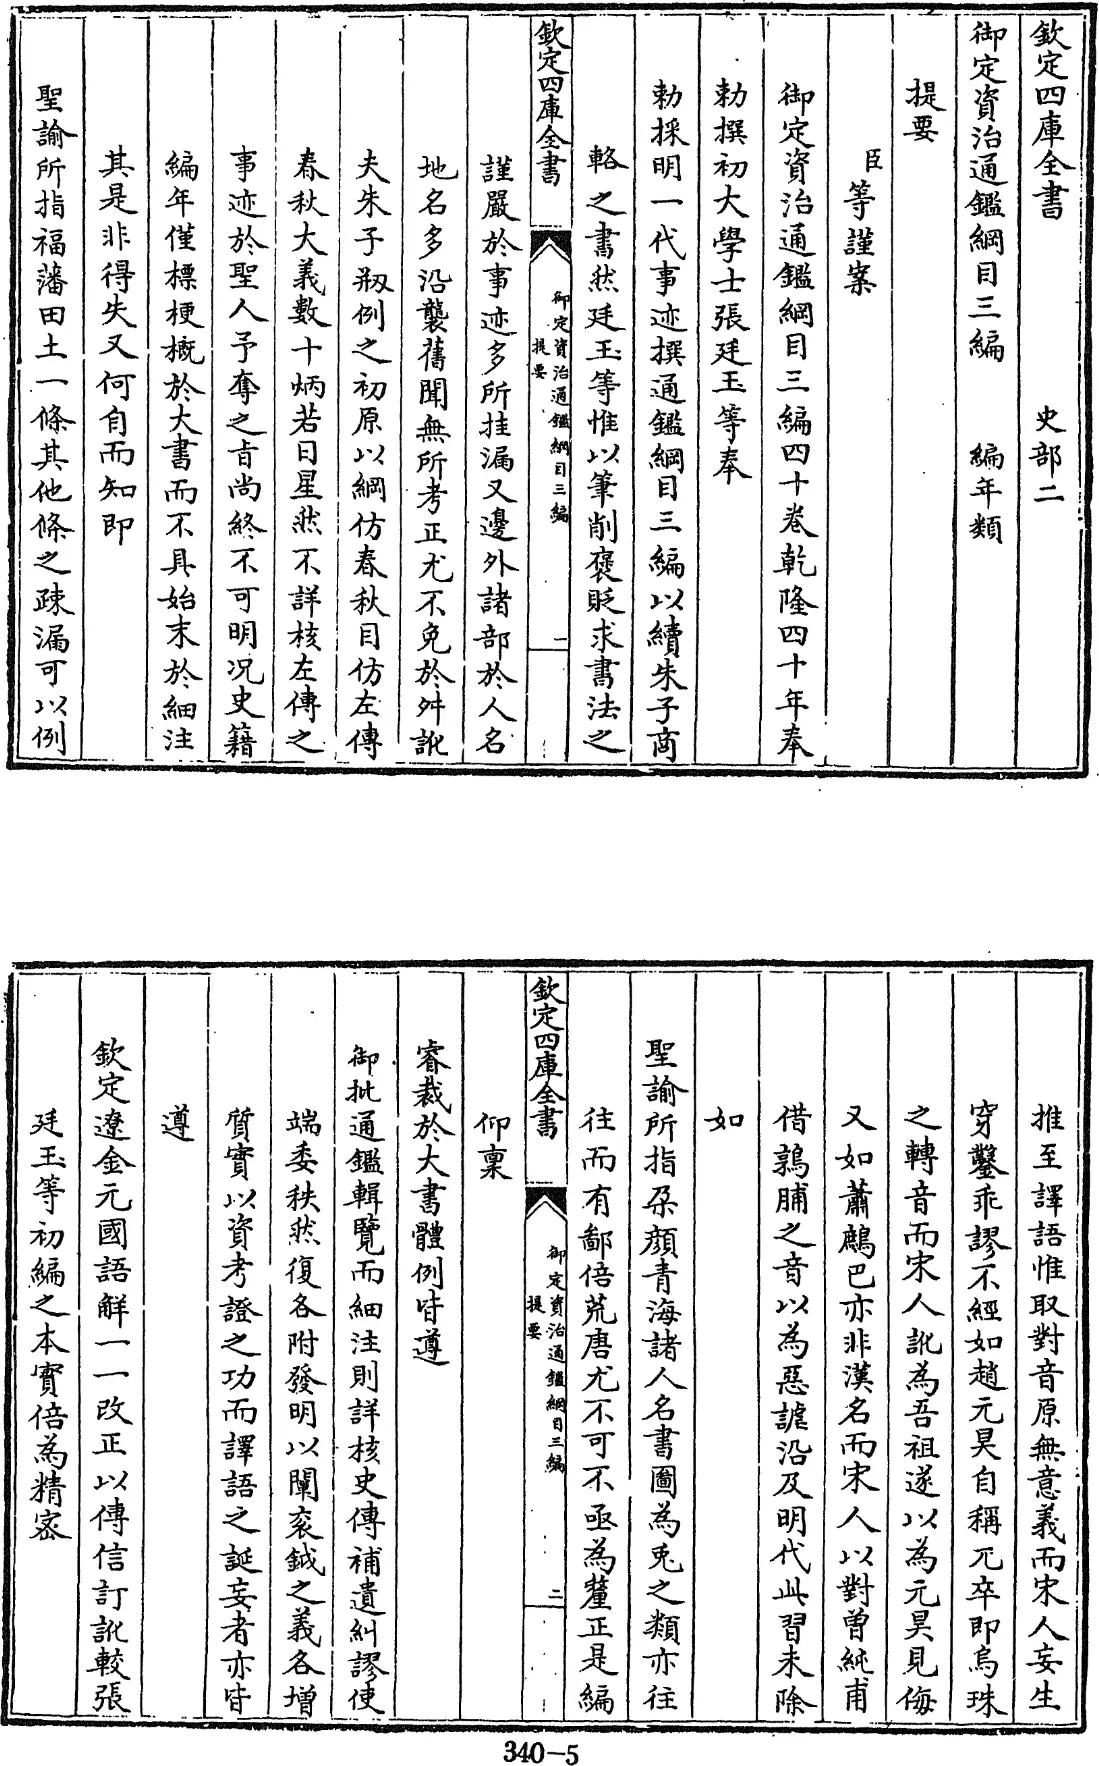 欽定四庫全書　史部二
御定資治通鑑綱目三編　編年類
提要
臣等謹案
御定資治通鑑綱目三編四十卷乾隆四十年奉
勅撰初大學士張廷玉等奉
勅採明一代事迹撰通鑑綱目三編以續朱子商
輅之書然廷玉等惟以筆削襃貶求書法之
欽定四庫全書　御定資治通鑑綱目三編提要　一
謹嚴於事迹多所挂漏又邊外諸部於人名
地名多沿襲舊聞無所考正尤不免於舛訛
夫朱子刱例之初原以綱仿春秋目仿左傳
春秋大義數十炳若日星然不詳核左傳之
事迹於聖人予奪之旨尚終不可明况史籍
編年僅標梗概於大書而不具始末於細注
其是非得失又何自而知即
聖諭所指福藩田土一條其他條之疎漏可以例
推至譯語惟取對音原無意義而宋人妄生
穿鑿乖謬不經如趙元昊自稱兀卒即烏珠
之轉音而宋人訛為吾祖遂以為元昊見侮
又如蕭鷓巴亦非漢名而宋人以對曾純甫
借鶉脯之音以為惡謔沿及明代此習未除
如
聖諭所指朶顔青海諸人名書圖為兎之類亦往
往而有鄙倍荒唐尤不可不亟為釐正是編
欽定四庫全書　御定資治通鑑綱目三編提要　二
仰稟
睿裁於大書體例皆遵
御批通鑑輯覽而細注則詳核史傳補遺糾謬使
端委秩然復各附發明以闡衮鉞之義各增
質實以資考證之功而譯語之誕妄者亦皆
遵
欽定遼金元國語解一一改正以傳信訂訛較張
廷玉等初編之本實倍為精宻
340-5